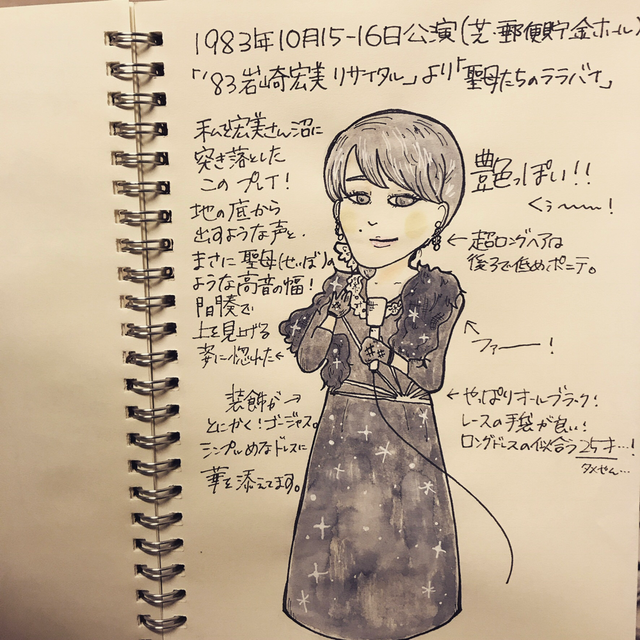 1983年10月15-16日公演(芝・郵便貯金ホール)
「'83岩崎宏美リサイタル」より「聖母たちのララバイ」
私を宏美さん沼に
突き落とした
このプレイ!
地の底から
出すような声と、
まさに聖母(せいぼ)の
ような高音の幅!
間奏で
上を見上げる
姿に惚れた
装飾が
とにかく!ゴージャス。
シンプルめなドレスに
華を添えてます。
艶っぽい!!
くぅ〜〜!
超ロングヘアは
後ろで低めポニテ。
ファー―!
やっぱりオールブラック!
レースの手袋が良い!
ロングドレスの似合う25才…!
タメやん…